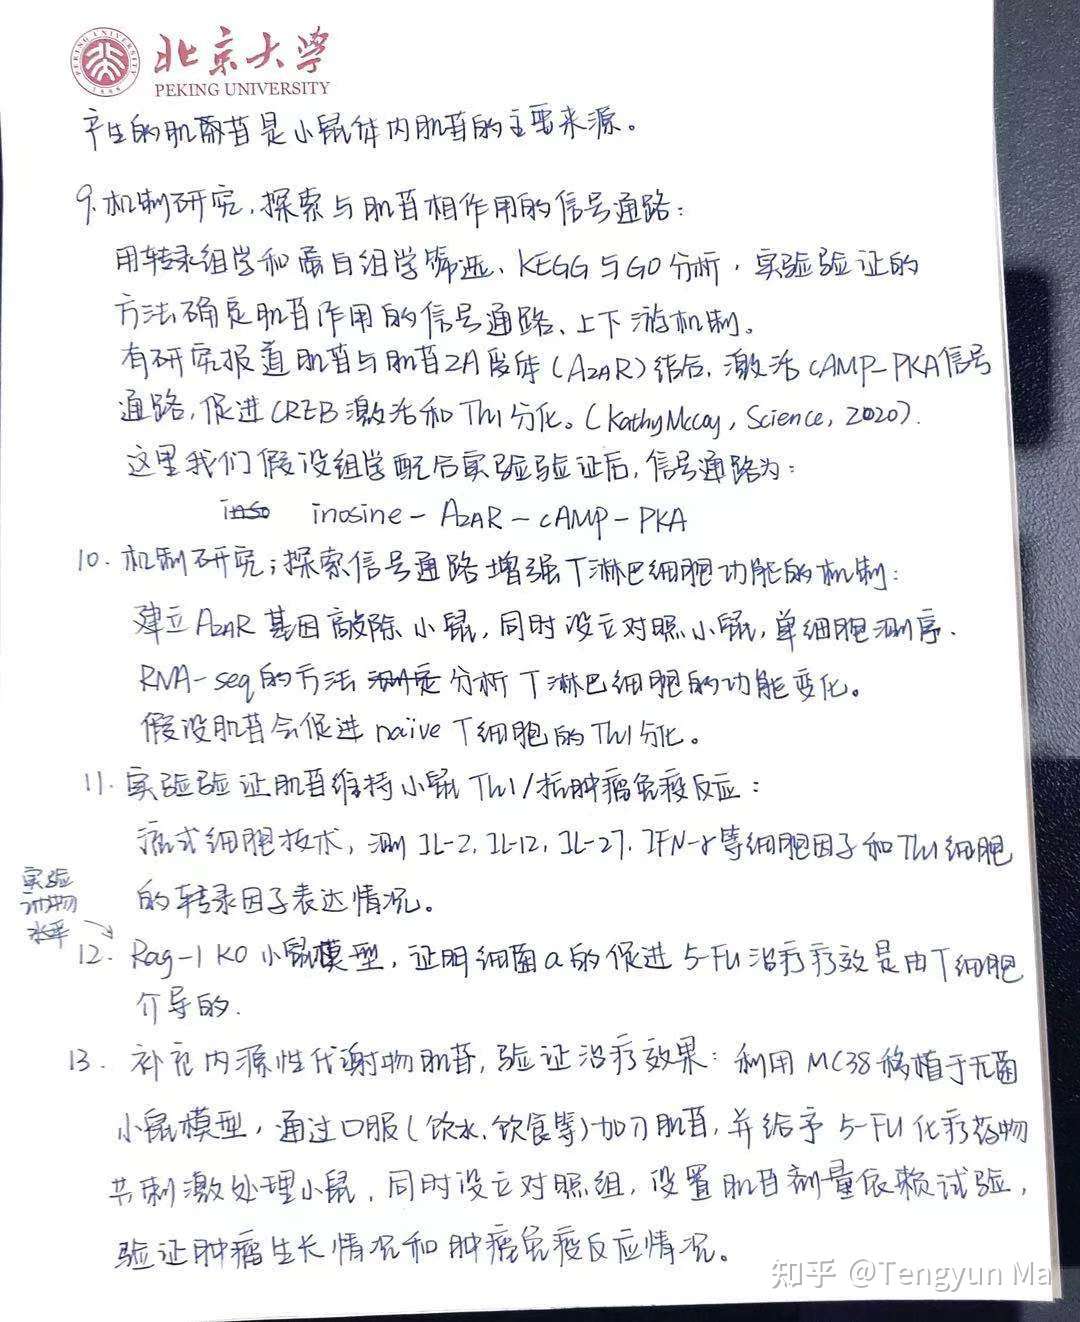 北京大学
PEKING UNIVERSITY
产生的肌苷是小鼠体内肌苷的主要来源。
9. 机制研究,探索与肌苷相作用的信号通路:
用转录组学和蛋白组学筛选、KEGG与GO分析,实验验证的
方法确定肌苷作用的信号通路、上下游机制。
有研究报道肌苷与肌苷2A受体(A2AR)结合,激活cAMP-PKA信号
通路,促进CREB激活和Th1分化。(Kathy Mccoy, Science, 2020).
这里我们假设组学配合实验验证后,信号通路为:
inosine-A2AR-cAMP-PKA
10. 机制研究;探索信号通路增强T淋巴细胞功能的机制:
建立A2AR基因敲除小鼠,同时设立对照小鼠,单细胞测序.
RNA-seq的方法测定分析T淋巴细胞的功能变化。
假设肌苷会促进naïve T细胞的Th1分化。
11. 实验验证肌苷维持小鼠Th1/抗肿瘤免疫反应:
流式细胞技术,测IL-2, IL-12, IL-27, IFN-γ等细胞因子和Th1细胞
的转录因子表达情况。
实验
动物
水平
12. Rag-1 KO小鼠模型,证明细菌a的促进5-FU治疗疗效是由T细胞
介导的.
13. 补充内源性代谢物肌苷,验证治疗效果:利用MC38移植于无菌
小鼠模型,通过口服(饮水、饮食等)加入肌苷,并给予5-FU化疗药物
共刺激处理小鼠,同时设立对照组,设置肌苷剂量依赖试验,
验证肿瘤生长情况和肿瘤免疫反应情况。
知乎 @Tengyun Ma